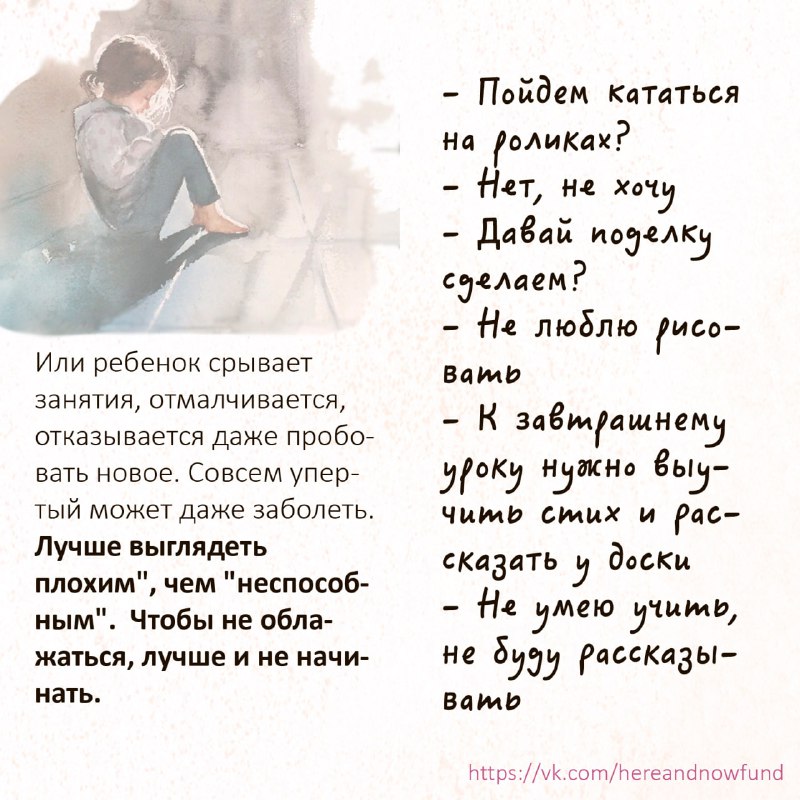 Или ребенок срывает
занятия, отмалчивается,
отказывается даже пробо-
вать новое. Совсем упер-
тый может даже заболеть.
Лучше выглядеть
плохим", чем "неспособ-
ным".  Чтобы не обла-
жаться, лучше и не начи-
нать.
– Пойдем кататься
на роликах?
– Нет, не хочу
– Давай поделку
сделаем?
– Не люблю рисо-
вать
– К завтрашнему
уроку нужно выу-
чить стих и рас-
сказать у доски
– Не умею учить,
не буду рассказы-
вать
https://vk.com/hereandnowfund